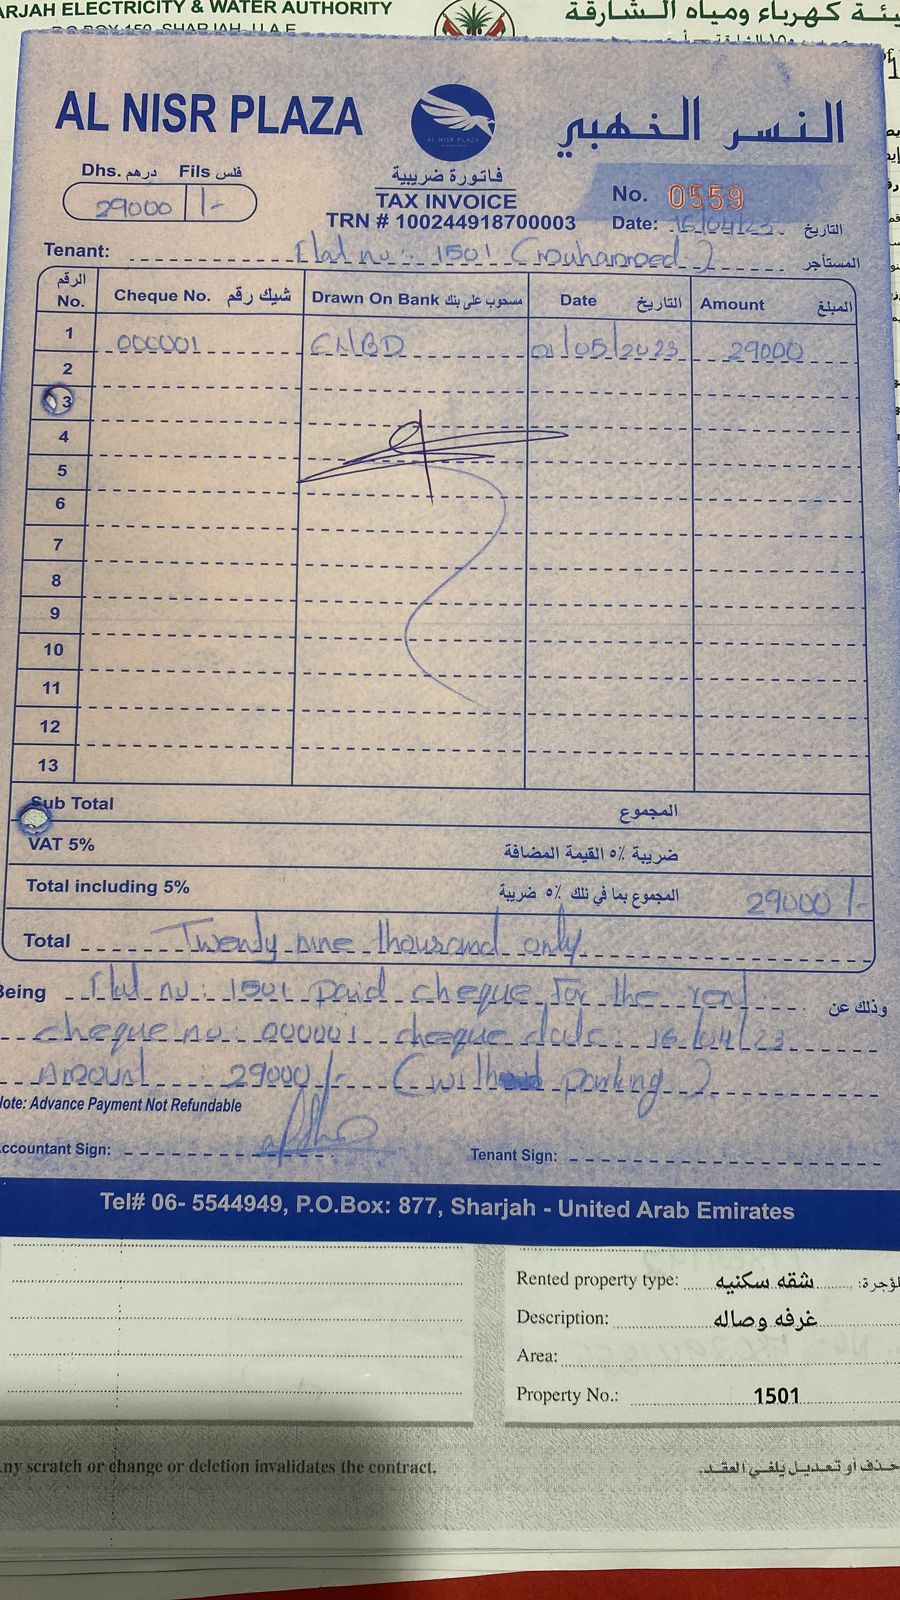 ARJAH ELECTRICITY & WATER AUTHORITY
يئة كهرباء ومياه الشارقة
AL NISR PLAZA
النسر الذهبي
AL NISR PLAZA
Dhs. درهم Fils فلس
29000 /-
فاتورة ضريبية
TAX INVOICE
TRN # 100244918700003
No. 0559
Date: 16/04/23 التاريخ
Tenant: Flat no: 1501 (Muhammed) المستأجر
الرقم No. Cheque No. شيك رقم Drawn On Bank مسحوب على بنك Date التاريخ Amount المبلغ
1 000001 ENBD 01/05/2023 29000
2
3
4
5
6
7
8
9
10
11
12
13
Sub Total المجموع
VAT 5% ضريبة ٥٪ القيمة المضافة
Total including 5% المجموع بما في ذلك ٥٪ ضريبة 29000/-
Total Twenty nine thousand only
Being Flat no: 1501 paid cheque for the rent وذلك عن
cheque no: 000001 cheque date: 16/04/23
Amount : 29000/- (with parking)
Note: Advance Payment Not Refundable
Accountant Sign:
Tenant Sign:
Tel# 06- 5544949, P.O.Box: 877, Sharjah - United Arab Emirates
Rented property type: شقه سكنيه
Description: غرفه وصاله
Area:
Property No.: 1501
ny scratch or change or deletion invalidates the contract.
حذف أو تعديل يلغي العقد.